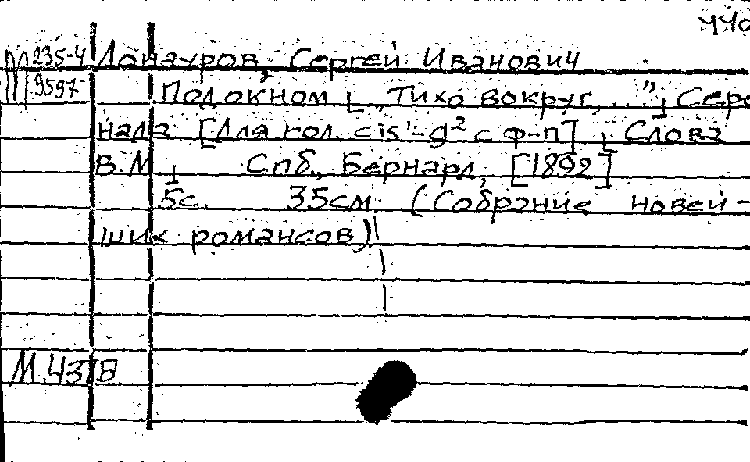 440
М 235-4 Донауров, Сергей Иванович
9597 Под окном [„Тихо вокруг..."] Сере
нада [Для гол. cis¹-g² с ф-п], Слова
В.М. Спб., Бернард, [1892]
5с. 35см. (Собрание новей-
ших романсов)
М.43 В